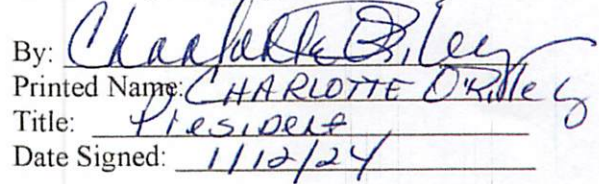 By: Charlotte O'Riley
Printed Name: CHARLOTTE O'Riley
Title: President
Date Signed: 1/12/24